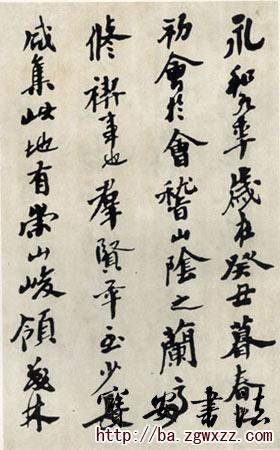 永和九年歲在癸丑暮春之
初會於會稽山陰之蘭亭
脩禊事也羣賢畢至少長
咸集此地有崇山峻領茂林
寶安書法
http://ba.zgwxzz.com